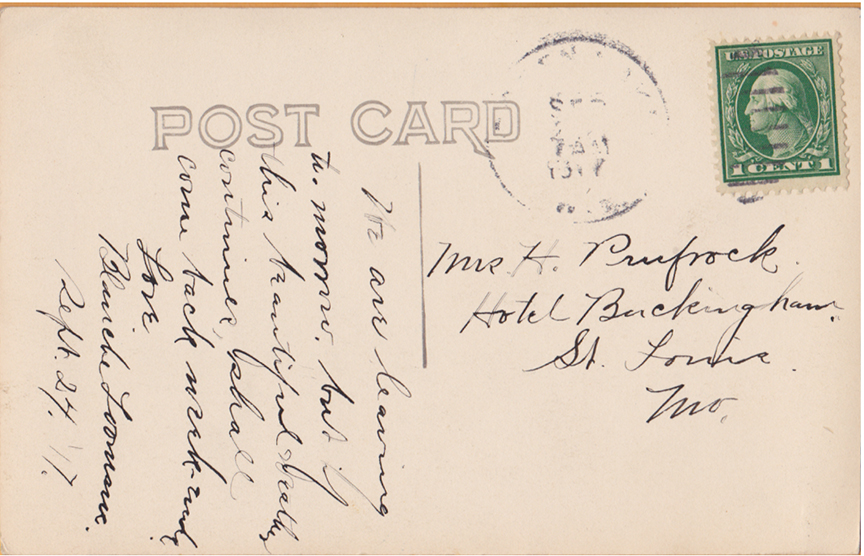 POST CARD
U.S. POSTAGE
1 CENT 1
1917
We are leaving
to-morrow, but if
this beautiful weather
continues, I shall
come back week-ends,
Love
Blanche
Sept. 24. '17.
Mrs H. Prufrock.
Hotel Buckingham.
St. Louis.
Mo.